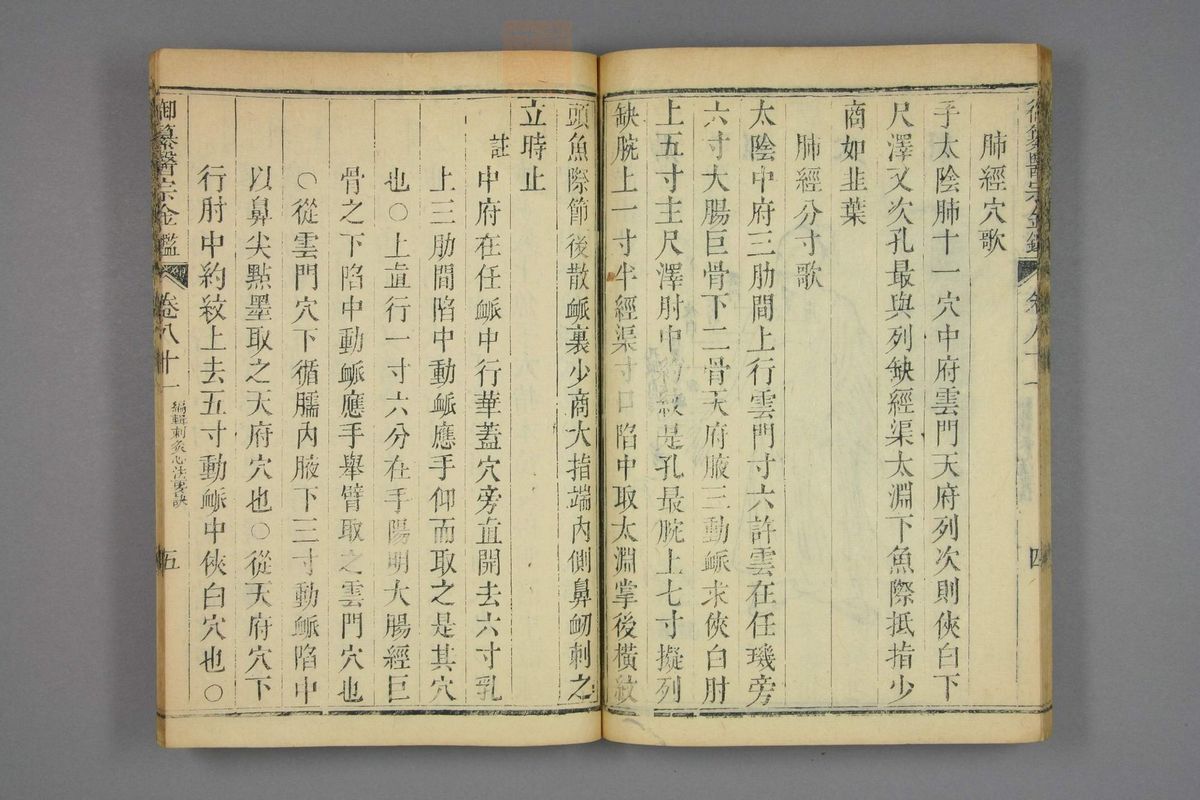 御纂醫宗金鑑 卷八十一 四
肺經穴歌
手太陰肺十一穴中府雲門天府列次則俠白下
尺澤又次孔最與列缺經渠太淵下魚際抵指少
商如韭葉
肺經分寸歌
太陰中府三肋間上行雲門寸六許雲在任璣旁
六寸大腸巨骨下二骨天府腋三動脈求俠白肘
上五寸主尺澤肘中約紋是孔最腕上七寸擬列
缺腕上一寸半經渠寸口陷中取太淵掌後橫紋
頭魚際節後散脈裏少商大指端內側鼻衂刺之
立時止
註 中府在任脈中行華蓋穴旁直開去六寸乳
上三肋間陷中動脈應手仰而取之是其穴
也○上直行一寸六分在手陽明大腸經巨
骨之下陷中動脈應手舉臂取之雲門穴也
○從雲門穴下循臑內腋下三寸動脈陷中
以鼻尖點墨取之天府穴也○從天府穴下
行肘中約紋上去五寸動脈中俠白穴也○
御纂醫宗金鑑 卷八十一 編輯刺灸心法要訣 五